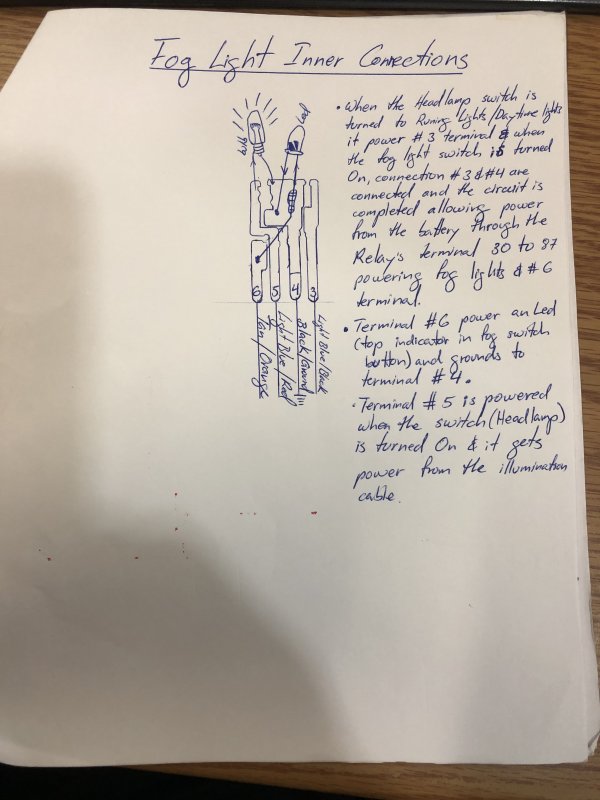 Fog Light Inner Connections
• When the Headlamp switch is
turned to Runing Lights/Daytime lights
it power #3 terminal & when
the fog light switch is turned
On, connection #3 & #4 are
connected and the circuit is
completed allowing power
from the battery through the
Relay's terminal 30 to 87
powering fog lights & #6
terminal.
• Terminal #6 power an Led
(top indicator in fog switch
button) and grounds to
terminal #4.
• Terminal #5 is powered
when the switch (Headlamp)
is turned On & it gets
power from the illumination
cable.
Led
6
5
4
3
Tan/Orange
Light Blue/Red
Black/Ground
Light Blue/Black